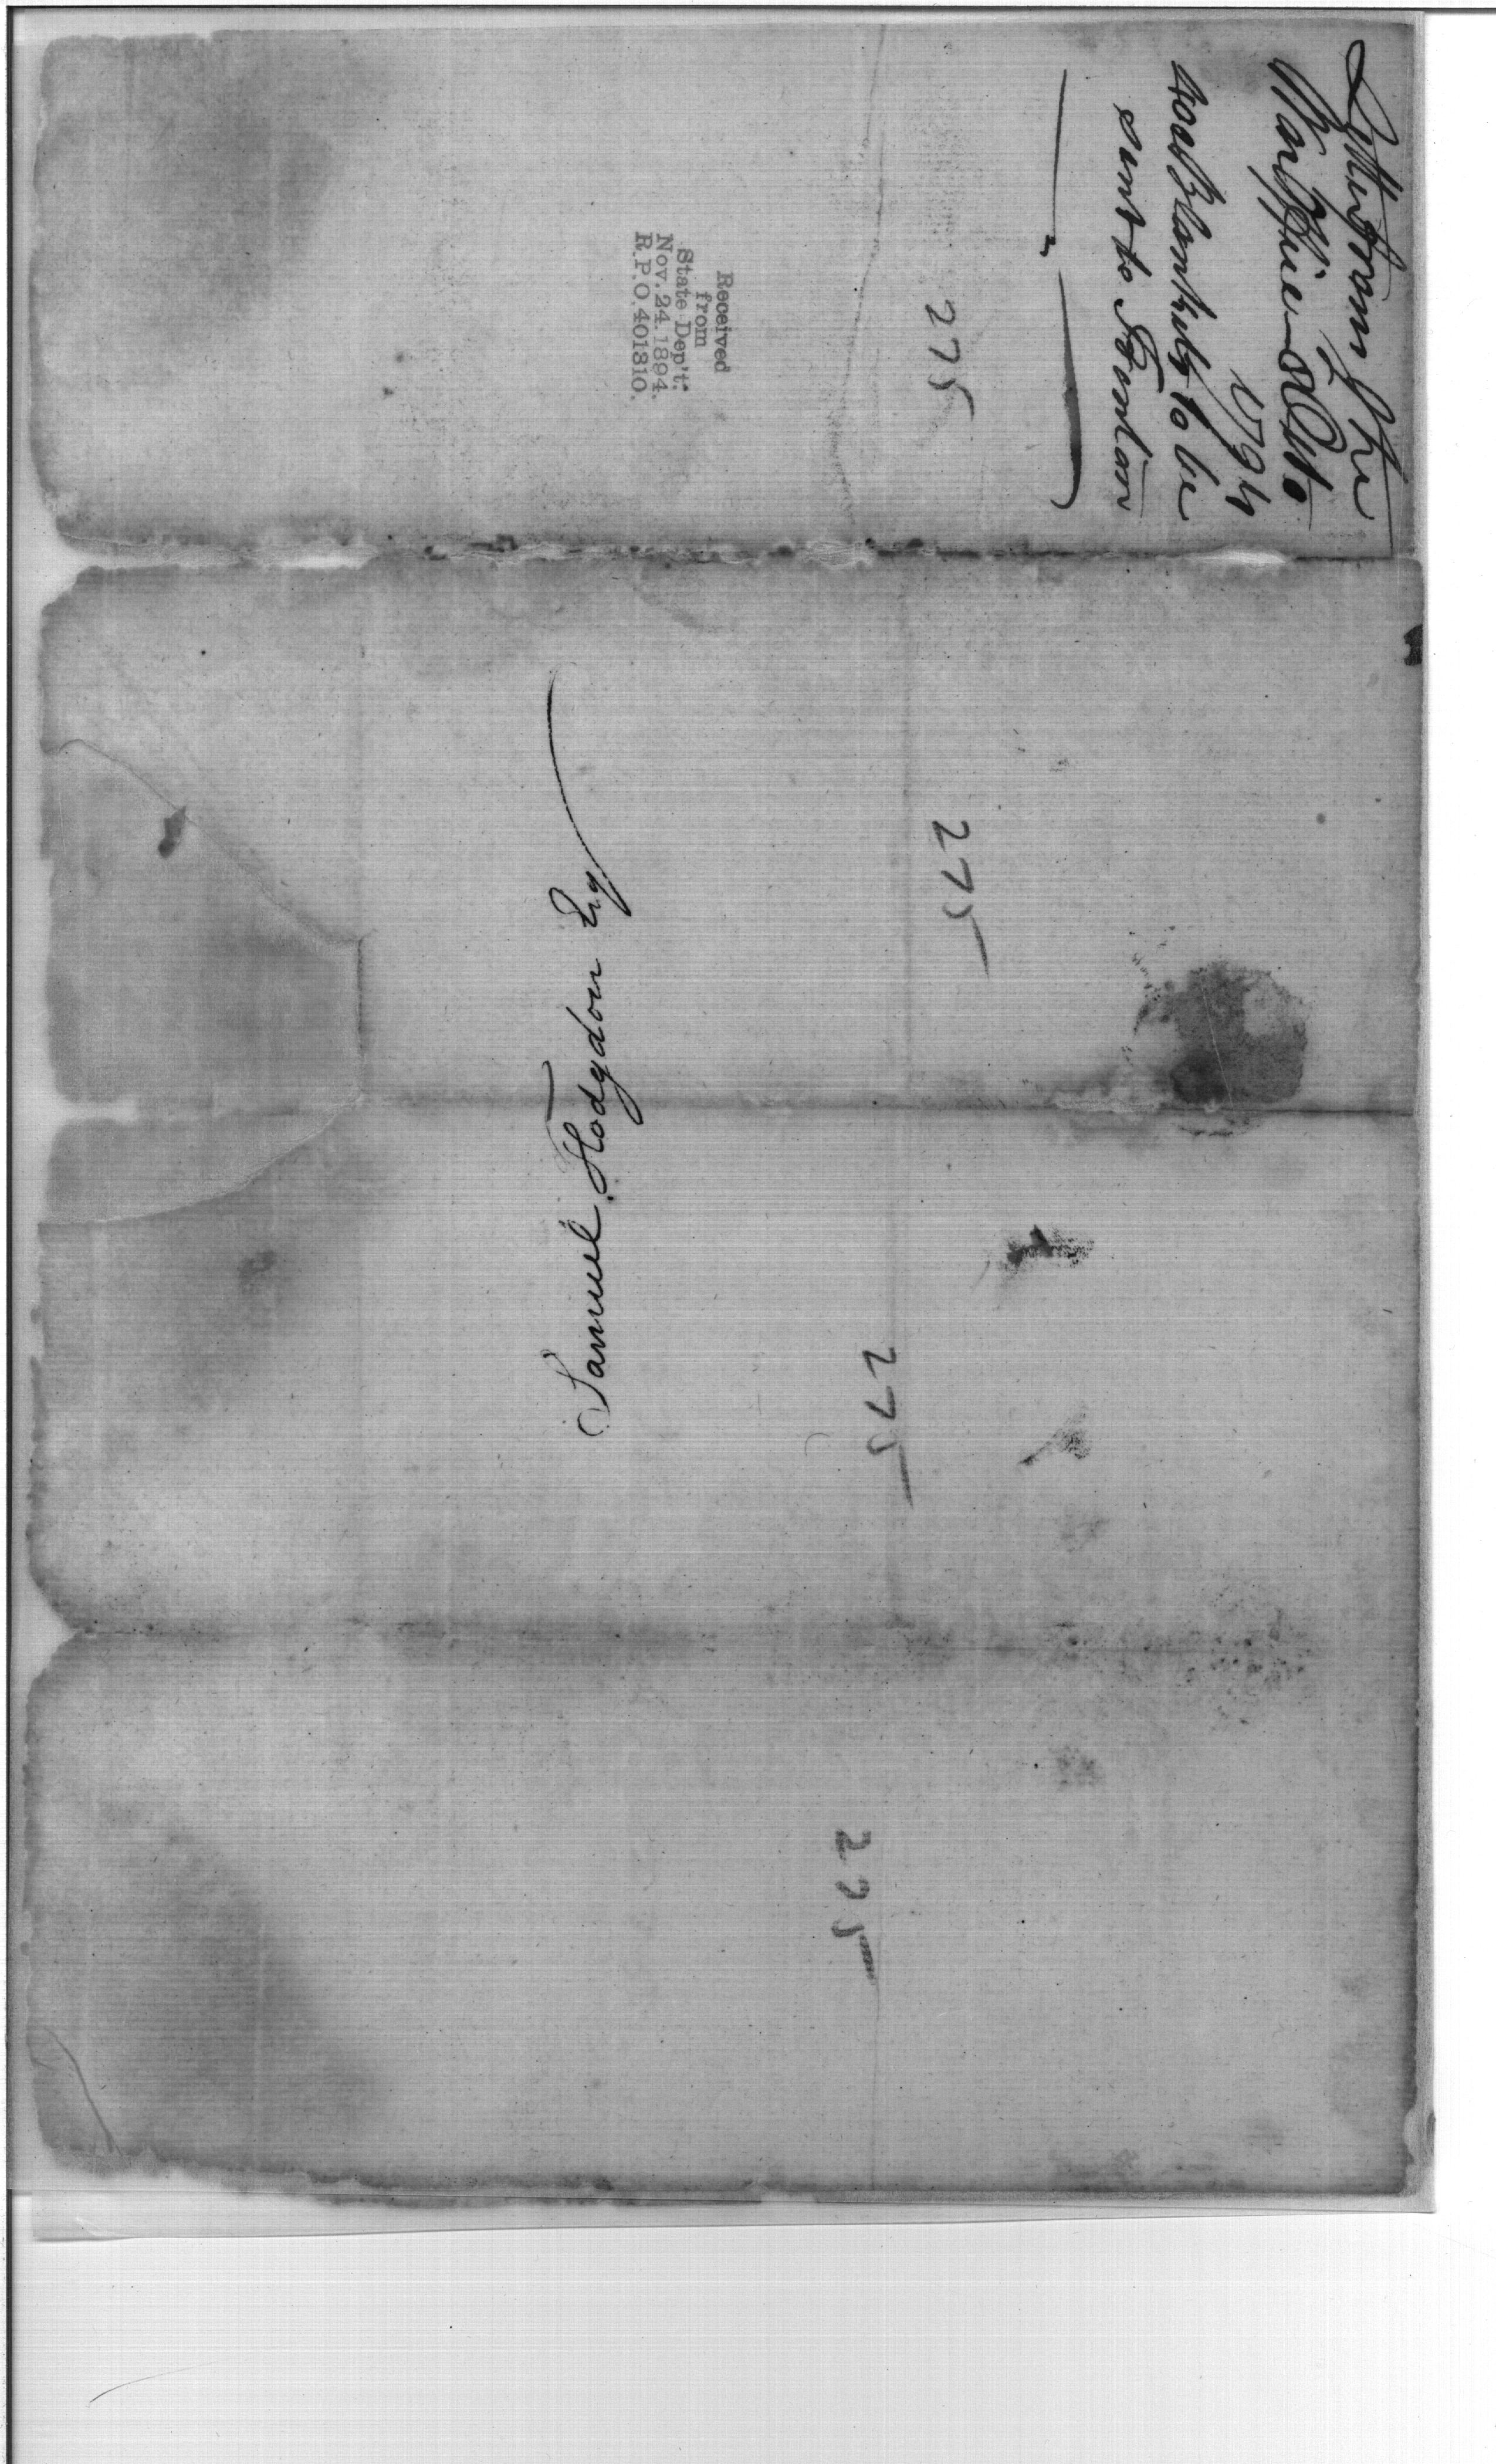 Letter from the
War Office Oct 10
1794
400 Blankets to be
sent to Frontier
275
Received
from
State Dep't.
Nov. 24. 1894.
R.P.O. 401310.
275
Samuel Hodgdon Esq
275
275